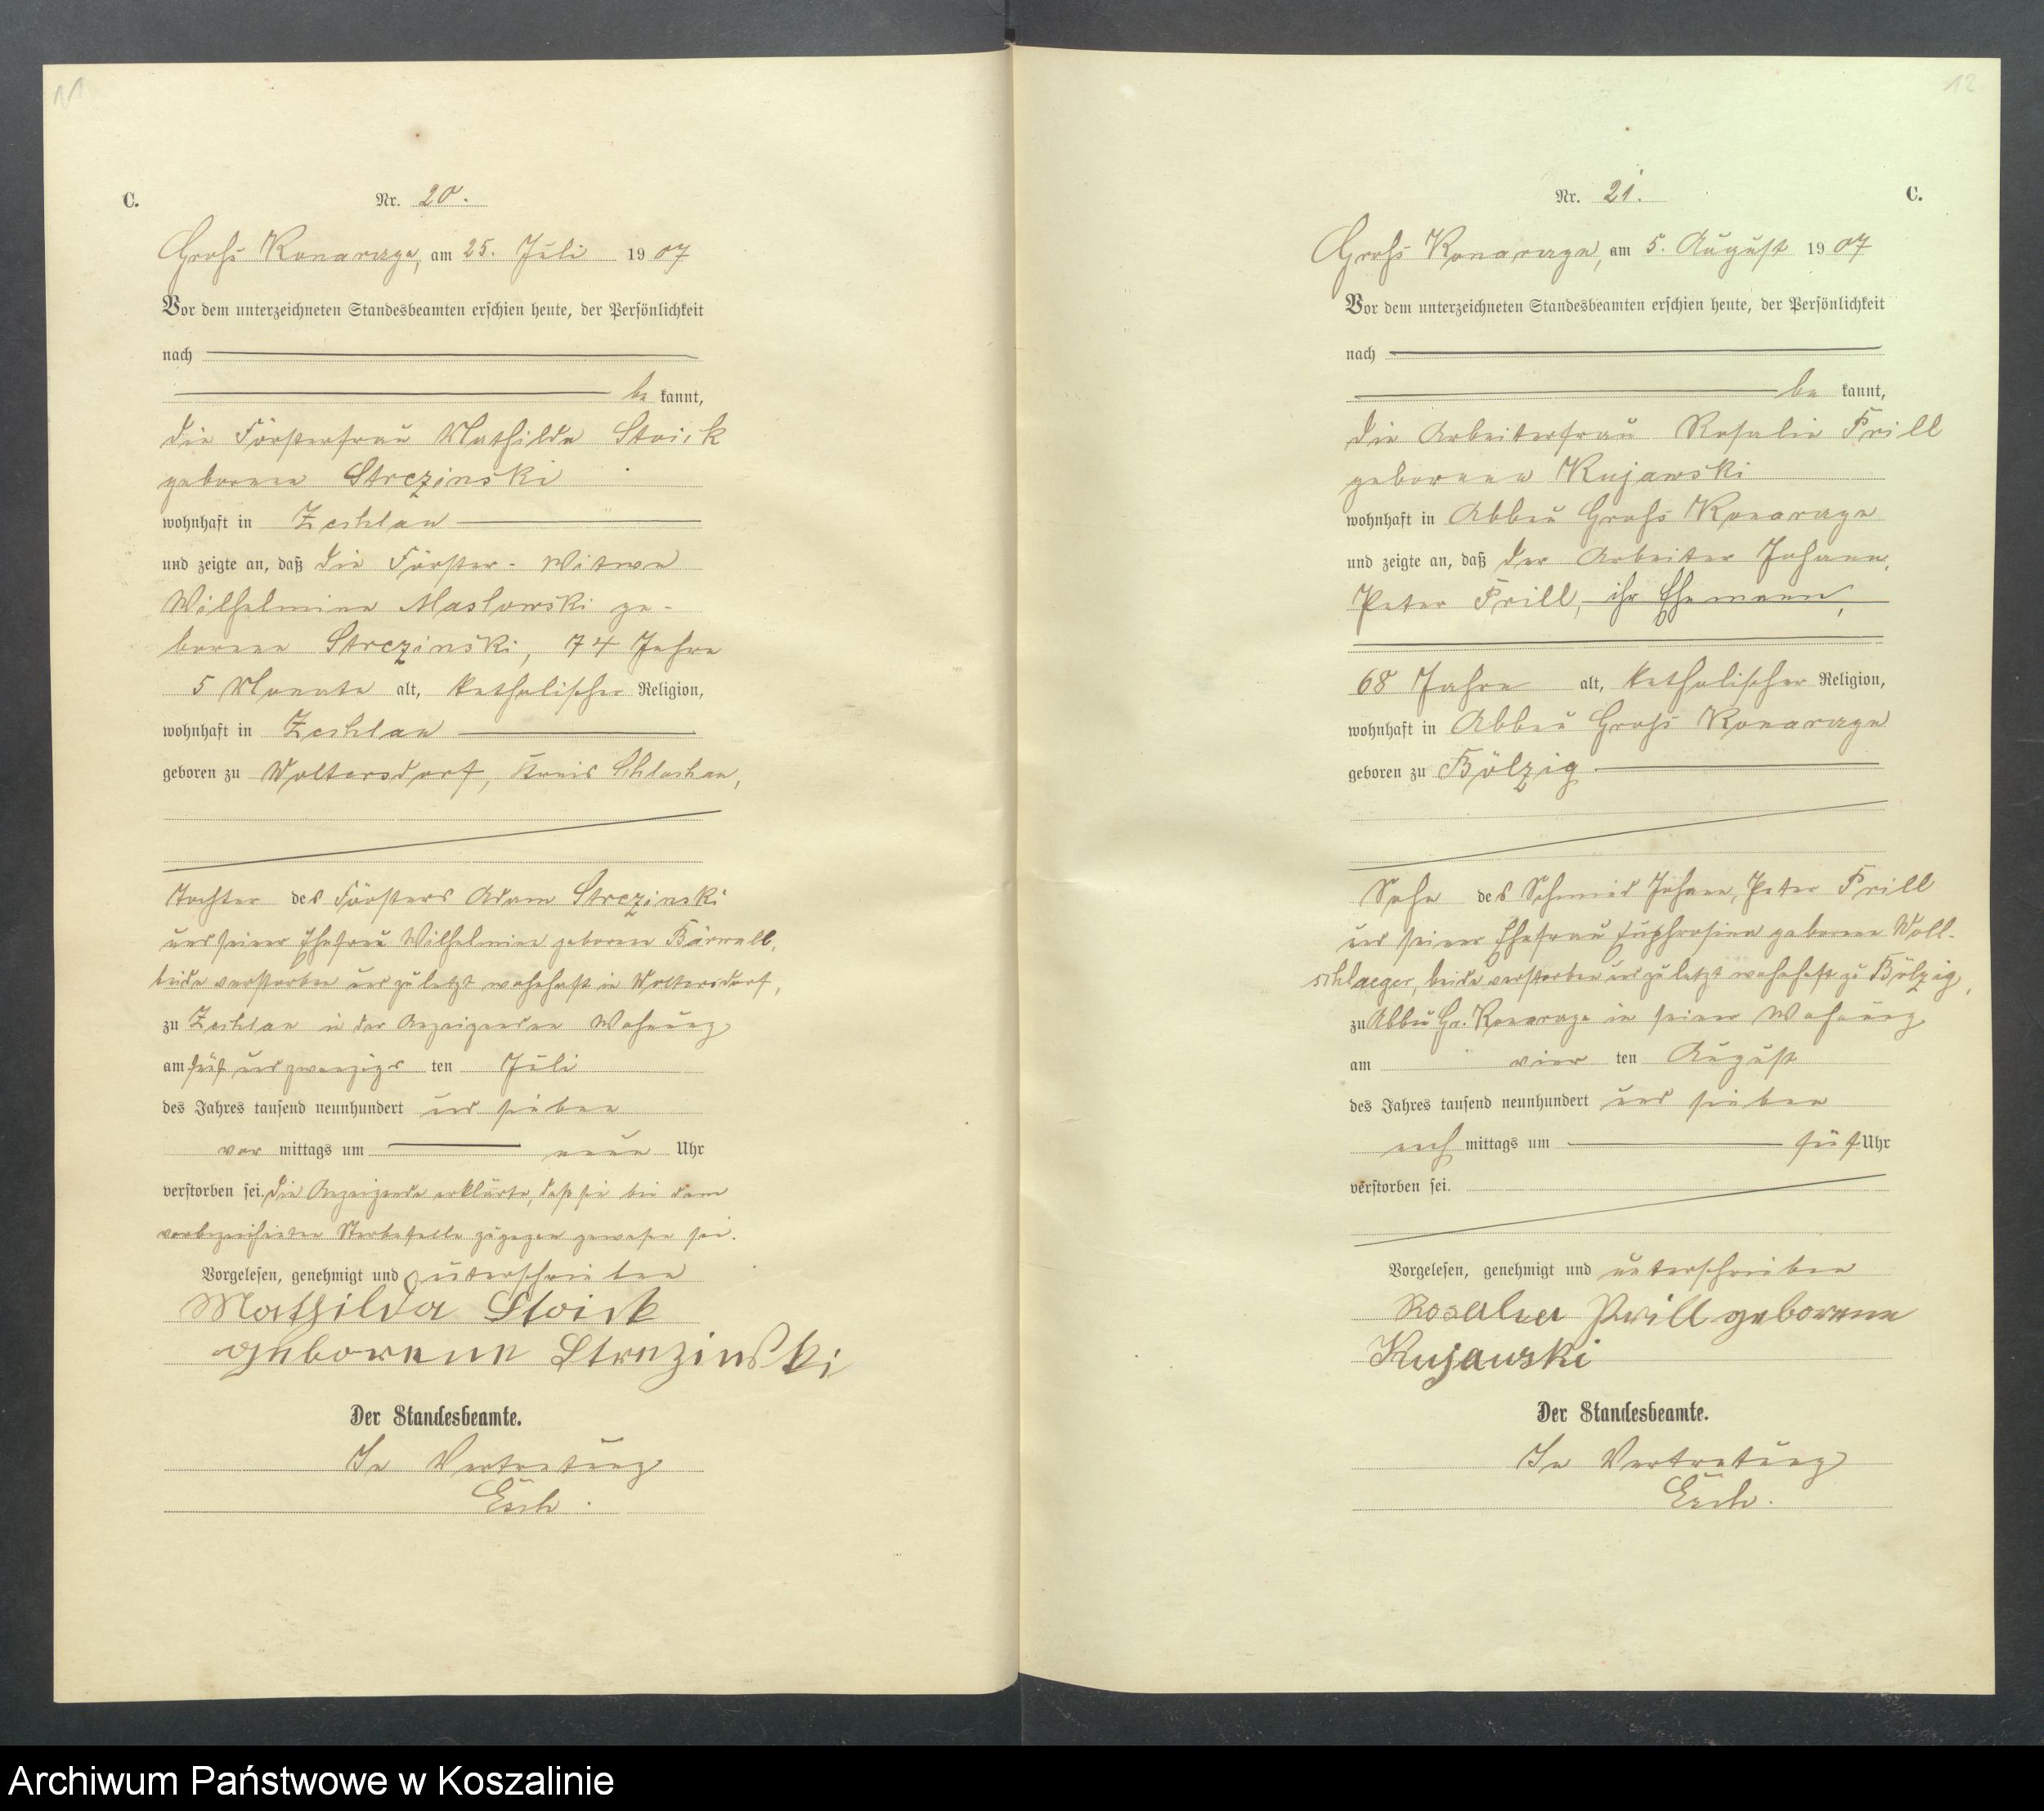 11
C.
Nr. 20.
Groß Konarczyn, am 25. Juli 1907
Vor dem unterzeichneten Standesbeamten erschien heute, der Persönlichkeit
nach
be kannt,
die Försterfrau Mathilde Stoick
geborene Strezinski
wohnhaft in Zechlau
und zeigte an, daß die Förster-Witwe
Wilhelmine Maslowski ge-
borene Strezinski, 74 Jahre
5 Monate alt, katholischer Religion,
wohnhaft in Zechlau
geboren zu Woltersdorf, Kreis Schlochau,
Tochter des Försters Adam Strezinski
und seiner Ehefrau Wilhelmine geborene Bärwall,
beide verstorben und zuletzt wohnhaft in Woltersdorf,
zu Zechlau in der Anzeigenden Wohnung
am fünf und zwanzigs ten Juli
des Jahres tausend neunhundert und sieben
vor mittags um neun Uhr
verstorben sei. Die Anzeigende erklärte, daß sie bei dem
vorbezeichneten Sterbefalle zugegen gewesen sei.
Vorgelesen, genehmigt und unterschrieben
Mathilda Stoick
geborene Strezinski
Der Standesbeamte.
In Vertretung
Esch.
12
Nr. 21.
C.
Groß Konarczyn, am 5. August 1907
Vor dem unterzeichneten Standesbeamten erschien heute, der Persönlichkeit
nach
be kannt,
die Arbeiterfrau Rosalie Prill
geborene Kujawski
wohnhaft in Abbau Groß Konarczyn
und zeigte an, daß der Arbeiter Johann,
Peter Prill, ihr Ehemann,
68 Jahre alt, katholischer Religion,
wohnhaft in Abbau Groß Konarczyn
geboren zu Bölzig
Sohn des Schmied Johann, Peter Prill
und seiner Ehefrau Euphrosine geborene Woll-
schlaeger, beide verstorben und zuletzt wohnhaft zu Bölzig,
zu Abbau Gr. Konarczyn in seiner Wohnung
am vier ten August
des Jahres tausend neunhundert und sieben
nach mittags um fünf Uhr
verstorben sei.
Vorgelesen, genehmigt und unterschrieben
Rosalier Prill geborene
Kujauski
Der Standesbeamte.
In Vertretung
Esch.
Archiwum Państwowe w Koszalinie